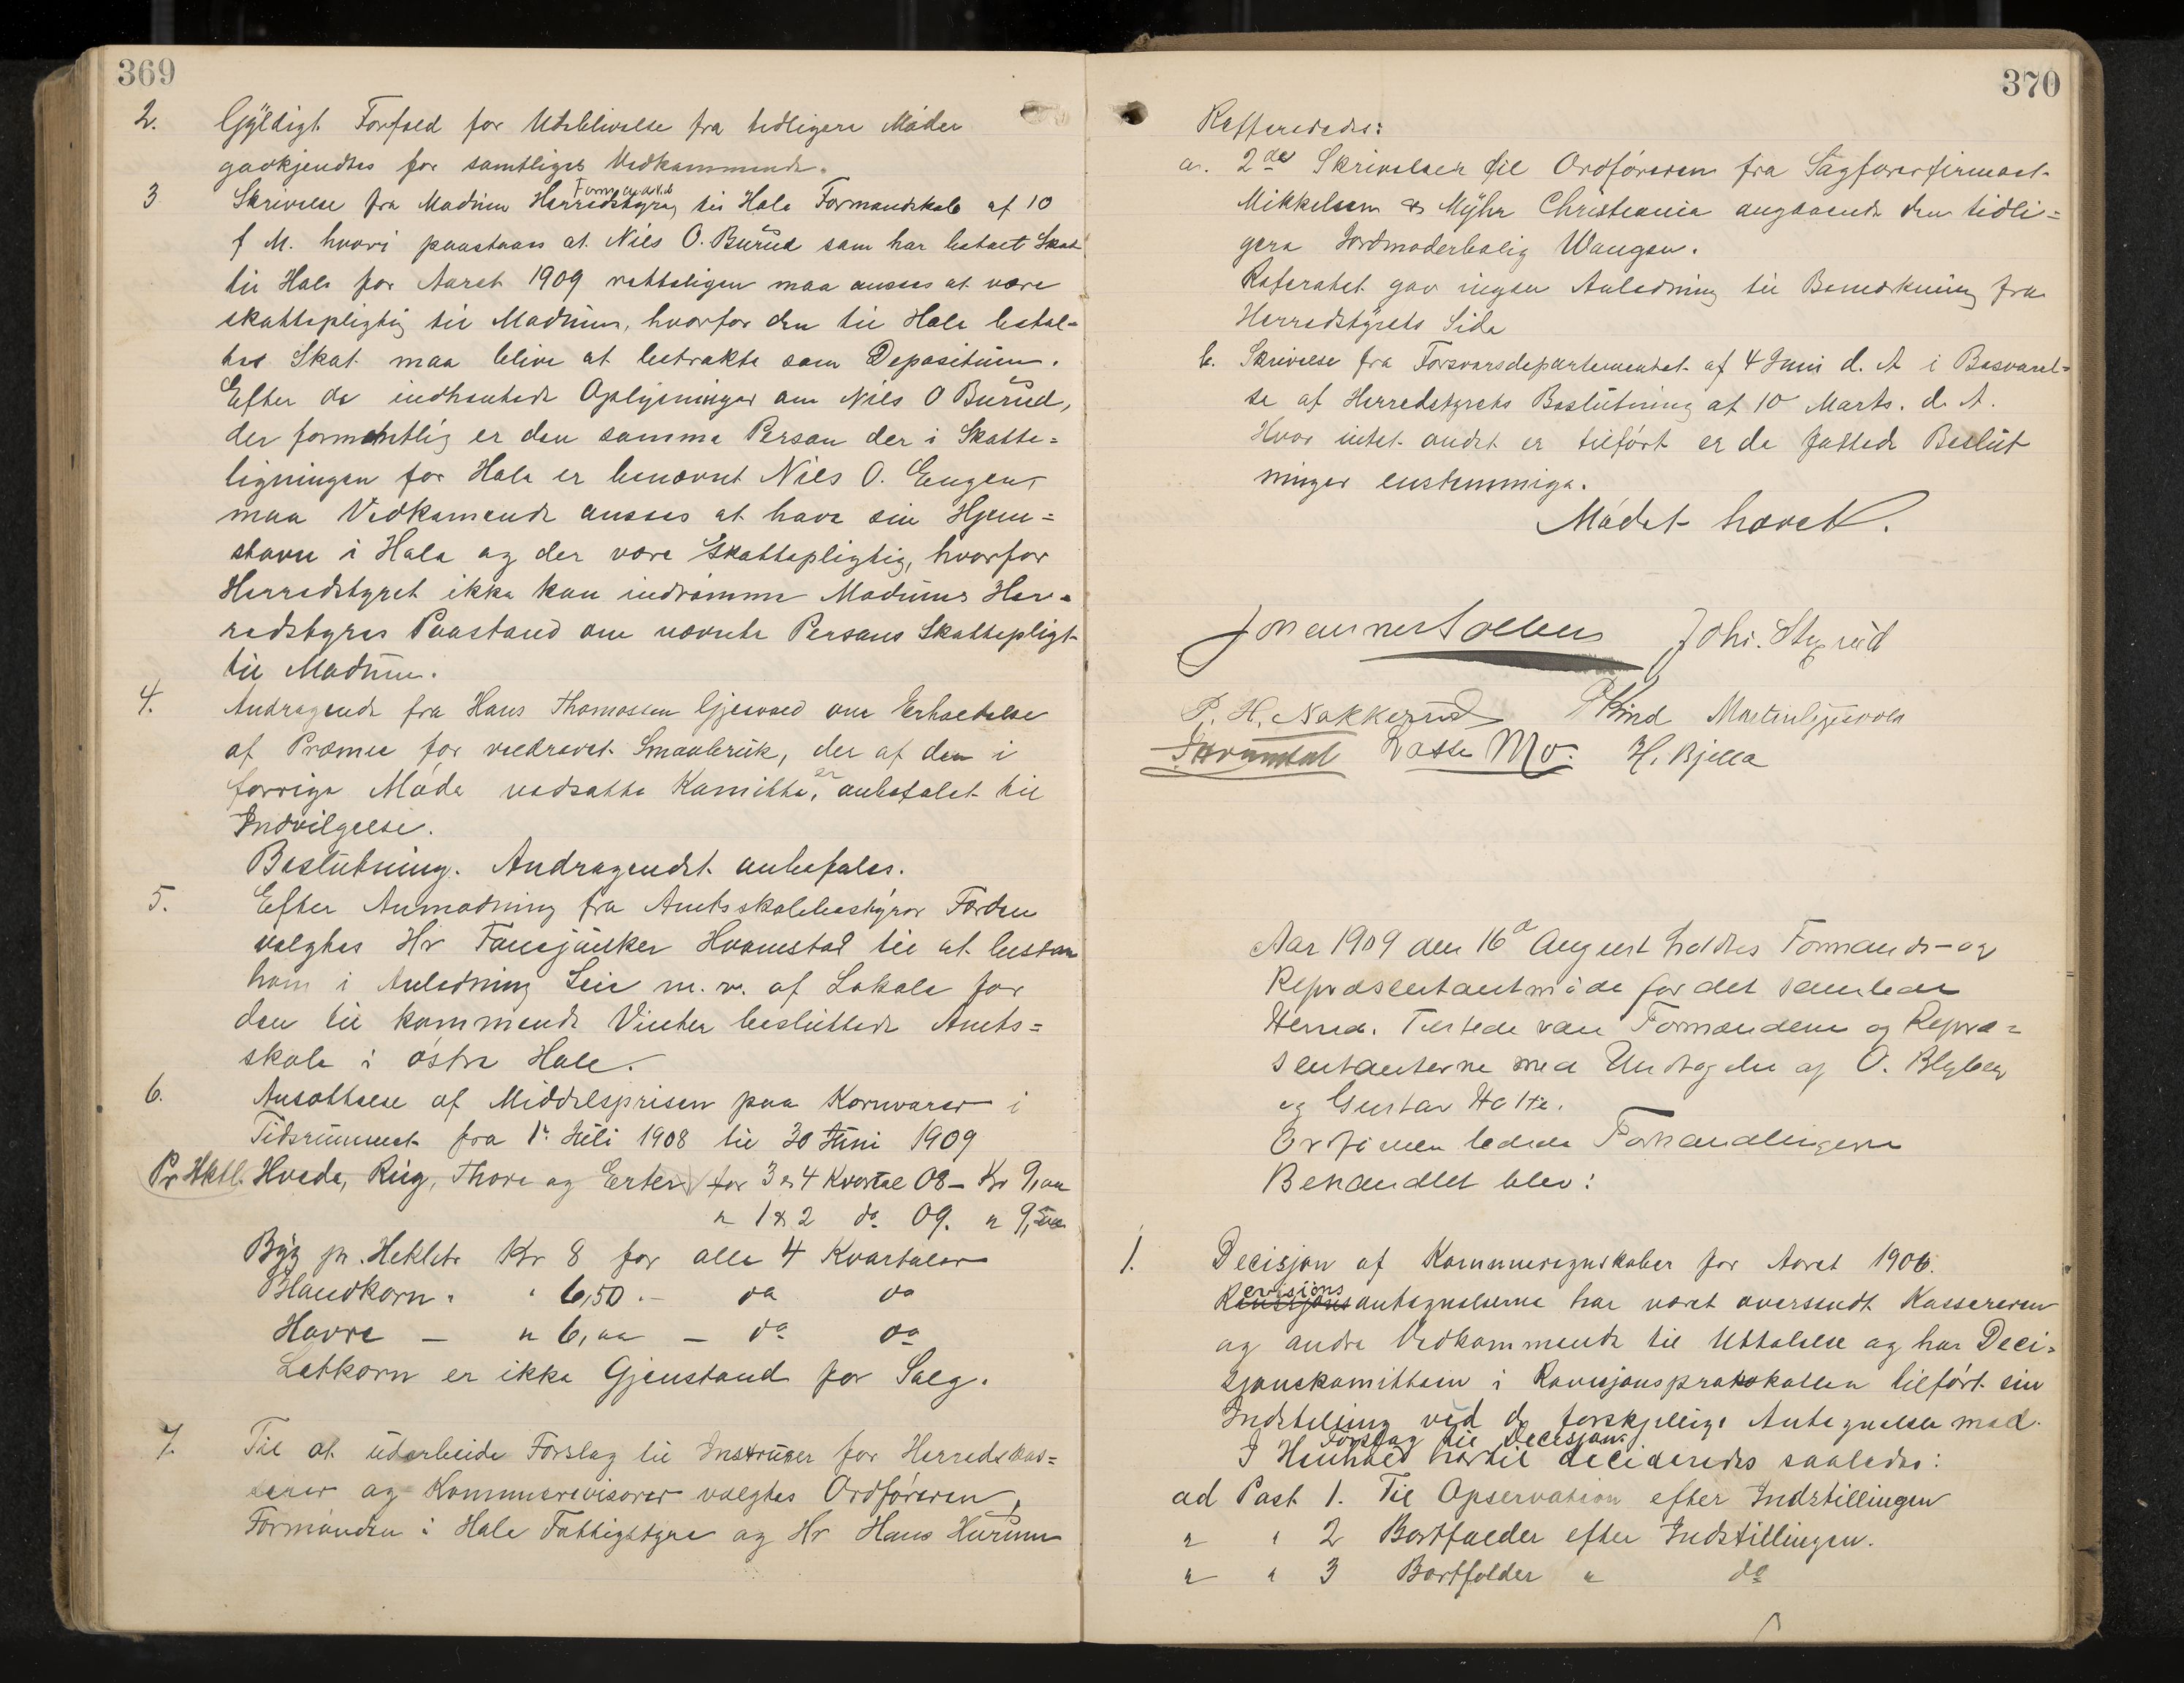 369
2. Gyldigt Forfald for Udeblivelse fra tidligere Møder
godkjendtes for samtliges Vedkommende.
3 Skrivelse fra Modum Formandsk Herredstyre til Hole Formandskab af 10
f M. hvori paastaaes at Nils O. Burud som har betalt Skat
til Hole for Aaret 1909 retteligen maa ansees at være
skattepligtig til Modum, hvorfor den til Hole betal-
tes Skat maa blive at betrakte som Depositum.
Efter de indhentede Oplysninger om Nils O Burud,
der formentlig er den samme Person der i Skatte-
ligningen for Hole er benævnt Nils O. Engen,
maa Vedkomende ansees at have sin Hjem-
stavn i Hole og der være Skattepligtig, hvorfor
Herredstyret ikke kan indrømme Modums Her-
redstyres Paastand om nævnte Persons Skattepligt
til Modum.
4. Andragende fra Hans Thomassen Gjesvold om Erholdelse
af Præmie for veldrevet Smaabruk, der af den i
forrige Møde nedsatte Komitte, er anbefalet til
Indvilgelse.
Beslutning. Andragendet anbefales.
5. Efter Anmodning fra Amtsskolebestyrer Forden
valgtes Hr Fanejunker Hvamstad til at bistaa
ham i Anledning Leie m. v. af Lokale for
den til kommende Vinter besluttede Amts-
skole i østre Hole.
6. Ansættelse af Middelsprisen paa Kornvarer i
Tidsrummet fra 1. Juli 1908 til 30 Juni 1909
Pr Hktl. Hvede, Rug, Thore og Erter for 3 & 4 Kvartal 08 - Kr 9,00
" 1 & 2 do. 09. " 9,50
Byg pr. Hektltr Kr 8 for alle 4 Kvartaler
Blandkorn " " 6,50 .- do do
Havre - " 6,00 - do do
Letkorn er ikke Gjenstand for Salg.
7. Til at udarbeide Forslag til Instruxer for Herredskas-
serer og Kommunerevisorer valgtes Ordføreren,
Formanden i Hole Fattigstyre og Hr Hans Hurum
370
Reffereredes:
a. 2de Skrivelser til Ordføreren fra Sagførerfirmaet
Mikkelsen & Myhr Christiania angaaende den tidli-
gere Jordmoderbolig Wangen.
Referatet gav ingen Anledning til Bemærkning fra
Herredstyrets Side
b. Skrivelse fra Forsvarsdepartementet af 4 Juni d. A i Besvarel-
se af Herredstyrets Beslutning af 10 Marts. d. A.
Hvor intet andet er tilført er de fattede Beslut
ninger enstemmige.
Mødet hævet.
Johannes Solberg Johs. Stixrud
P. H. Nakkerud Kind Martin Gjesvold
Hvamstad Lasse Mo. H. Bjella
Aar 1909 den 16de August holdtes Formands- og
Repræsentantmøde for det samlede
Herred. Tilstede var Formændene og Repræ-
sentanterne med Undtagelse af O. Blyberg
og Gustav Holte.
Ordføreren ledede Forhandlingerne
Behandlet blev:
1. Decisjon af Kommuneregnskaber for Aaret 1906.
Revisionsantegnelserne har været oversendt Kassereren
og andre Vedkommende til Uttalelse og har Deci-
sjonskomitteen i Revisjonsprotokollen tilført sin
Indstilling ved de forskjellige Antegnelser med
Forslag til Decisjon.
I Henhold hertil decideredes saaledes:
ad Post 1. Til Opservation efter Indstillingen
" " 2 Bortfalder efter Indstillingen.
" " 3 Bortfalder " do